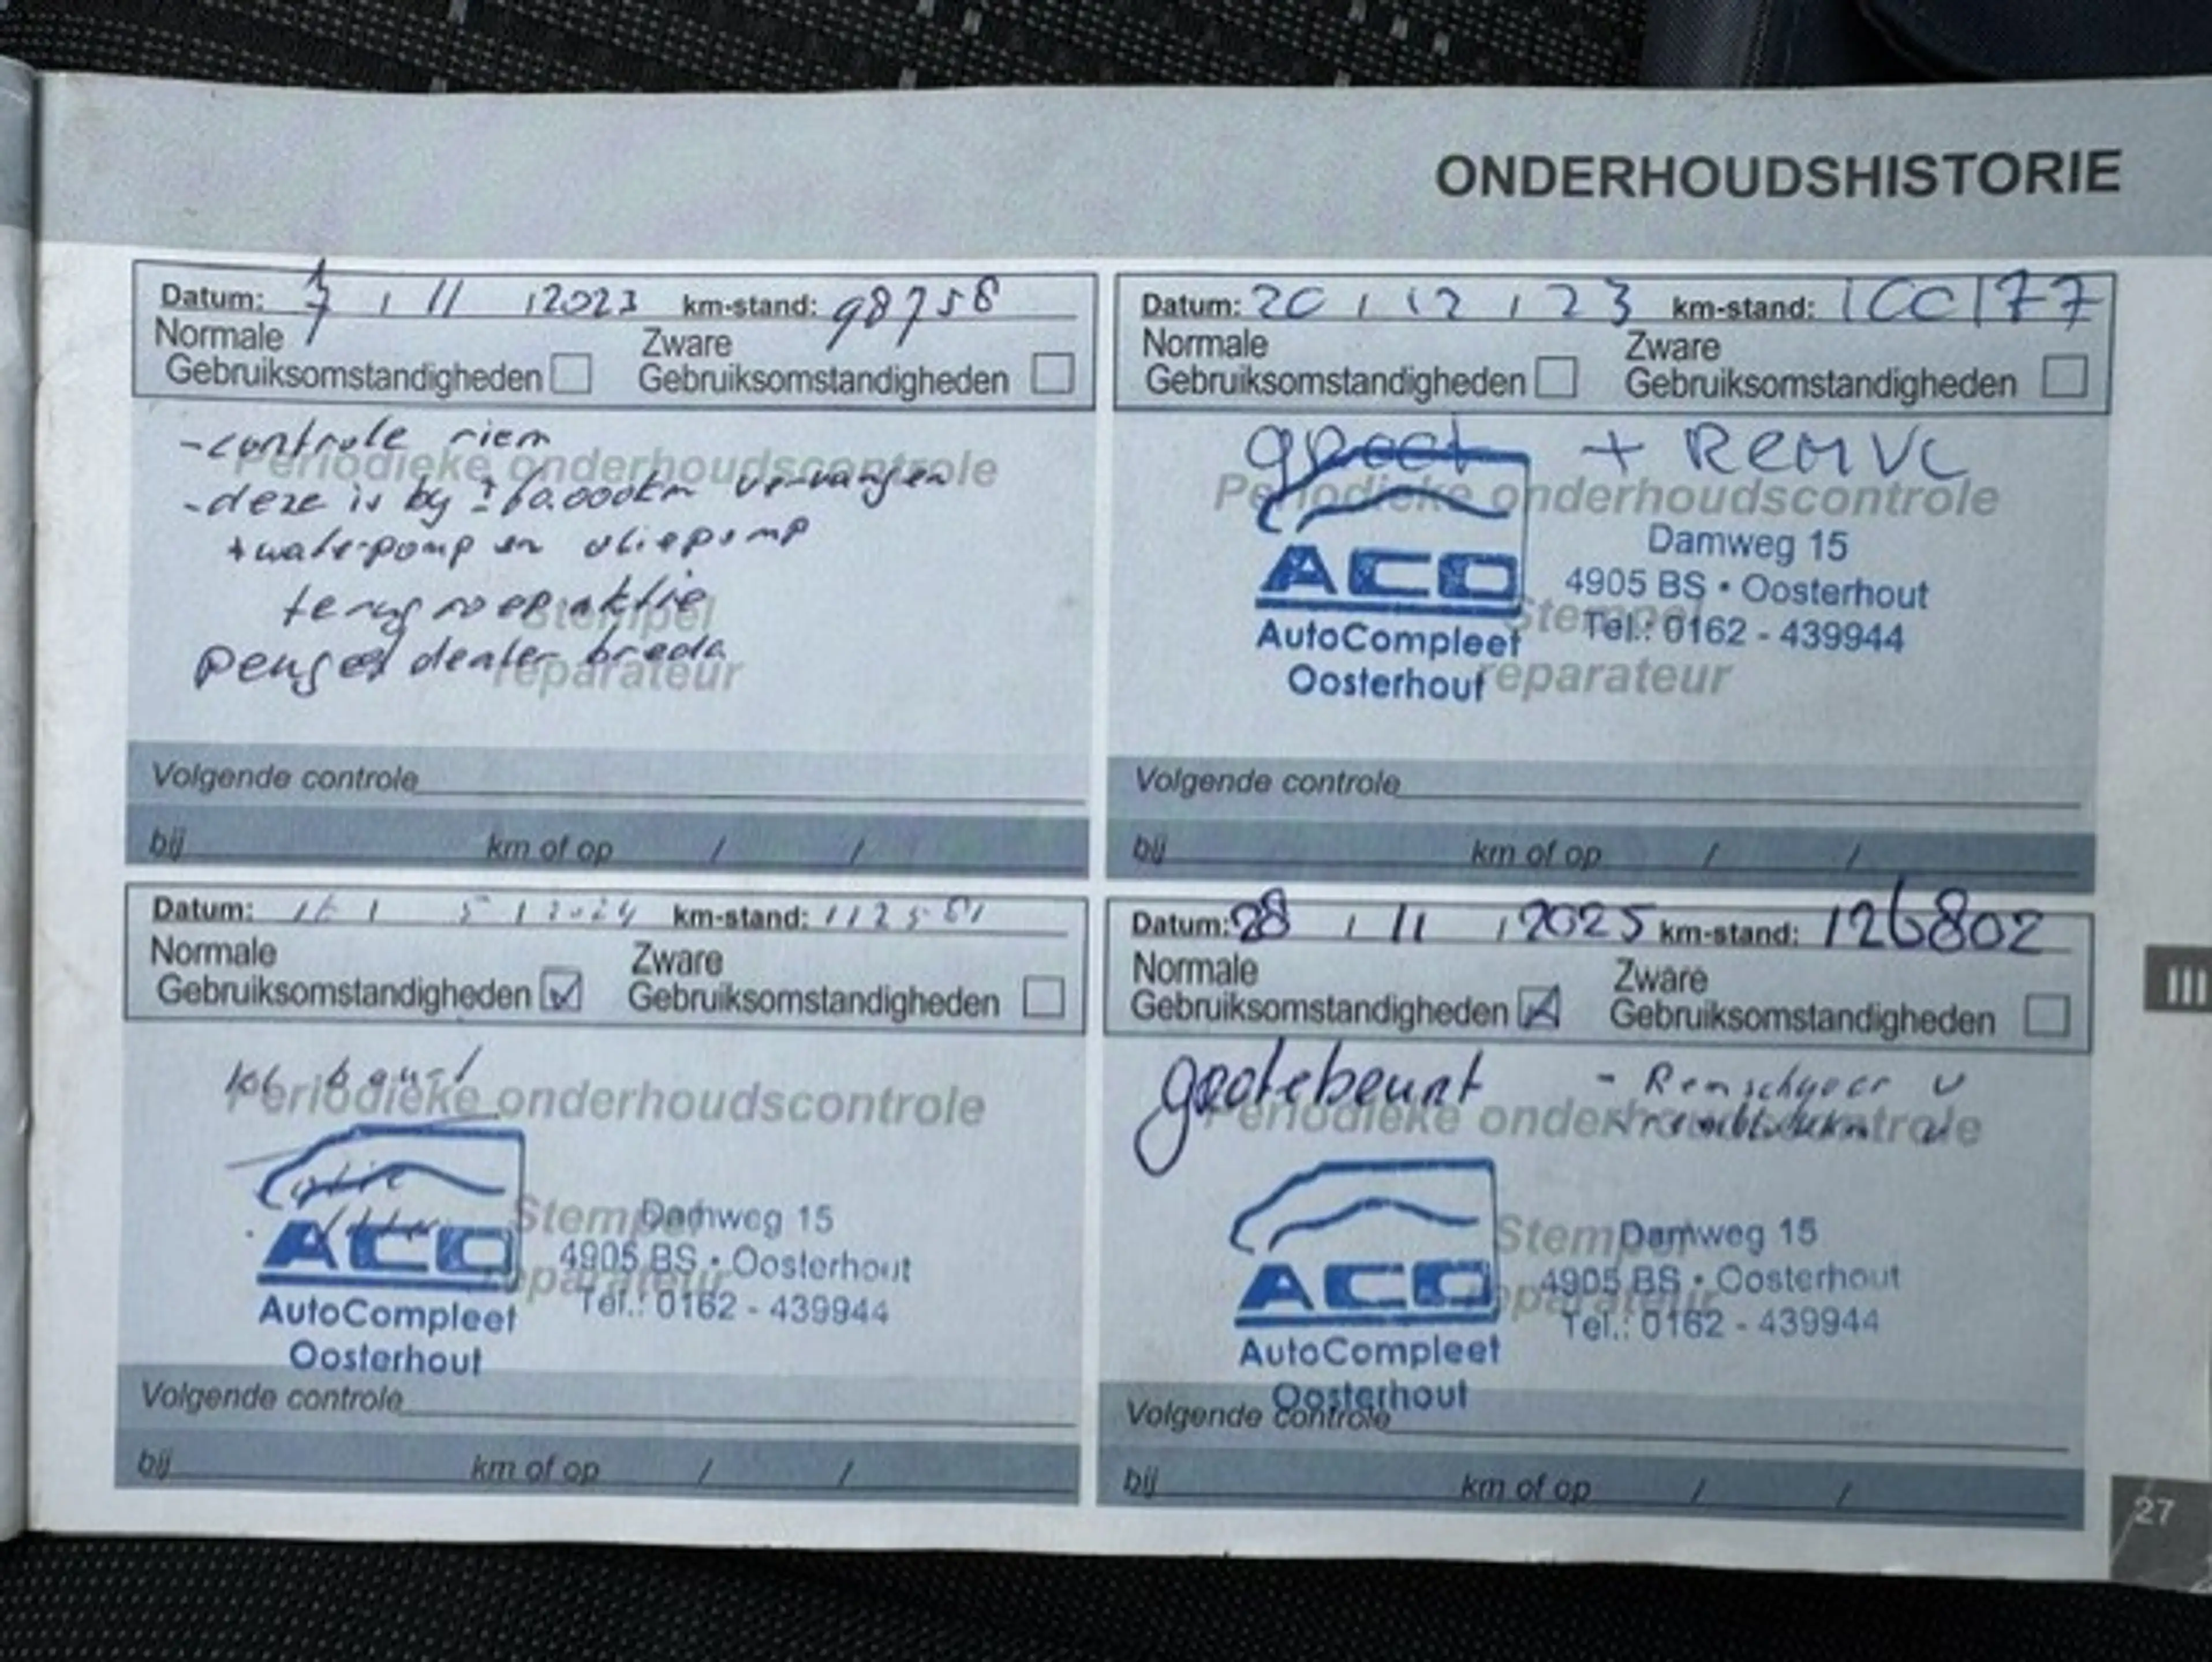 ONDERHOUDSHISTORIE
Datum: 7 / 11 / 2023 km-stand: 98758
Normale Zware
Gebruiksomstandigheden Gebruiksomstandigheden
- controle riem
Periodieke onderhoudscontrole
- deze is by ± 60.000km vervangen
+ waterpomp en oliepomp
terugroepaktie
Stempel
dealer breda
reparateur
Volgende controle
bij km of op / /
Datum: 20 / 12 / 23 km-stand: 100177
Normale Zware
Gebruiksomstandigheden Gebruiksomstandigheden
+ Rem
Periodieke onderhoudscontrole
Damweg 15
ACO 4905 BS • Oosterhout
Stempel
AutoCompleet Tel.: 0162 - 439944
Oosterhout reparateur
Volgende controle
bij km of op / /
Datum: 16 / 5 / 2024 km-stand: 112581
Normale Zware
Gebruiksomstandigheden Gebruiksomstandigheden
Periodieke onderhoudscontrole
Stempel Damweg 15
ACO 4905 BS • Oosterhout
reparateur
AutoCompleet Tel.: 0162 - 439944
Oosterhout
Volgende controle
bij km of op / /
Datum: 28 / 11 / 2025 km-stand: 126802
Normale Zware
Gebruiksomstandigheden Gebruiksomstandigheden
V
Periodieke onderhoudscontrole
Stempel Damweg 15
ACO 4905 BS • Oosterhout
reparateur
AutoCompleet Tel.: 0162 - 439944
Oosterhout
Volgende controle
bij km of op / /
III
27